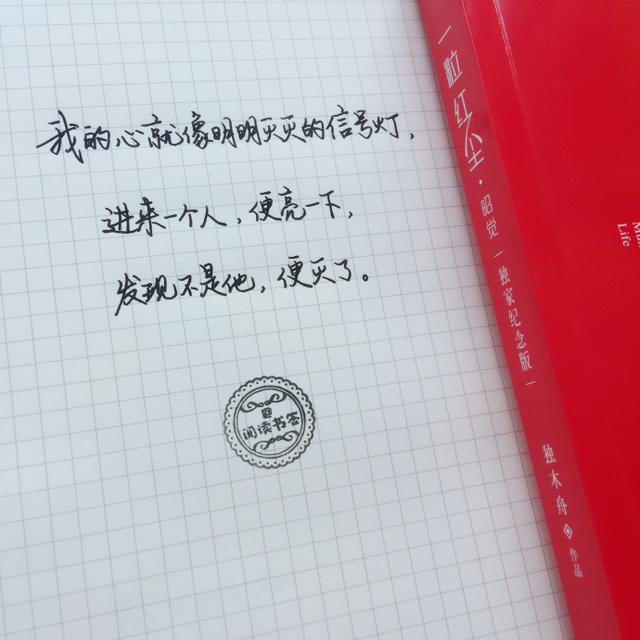 我的心就像明明灭灭的信号灯，
进来一个人，便亮一下，
发现不是他，便灭了。
阅读书签
一粒红尘·昭觉｜独家纪念版｜
独木舟 作品
Life